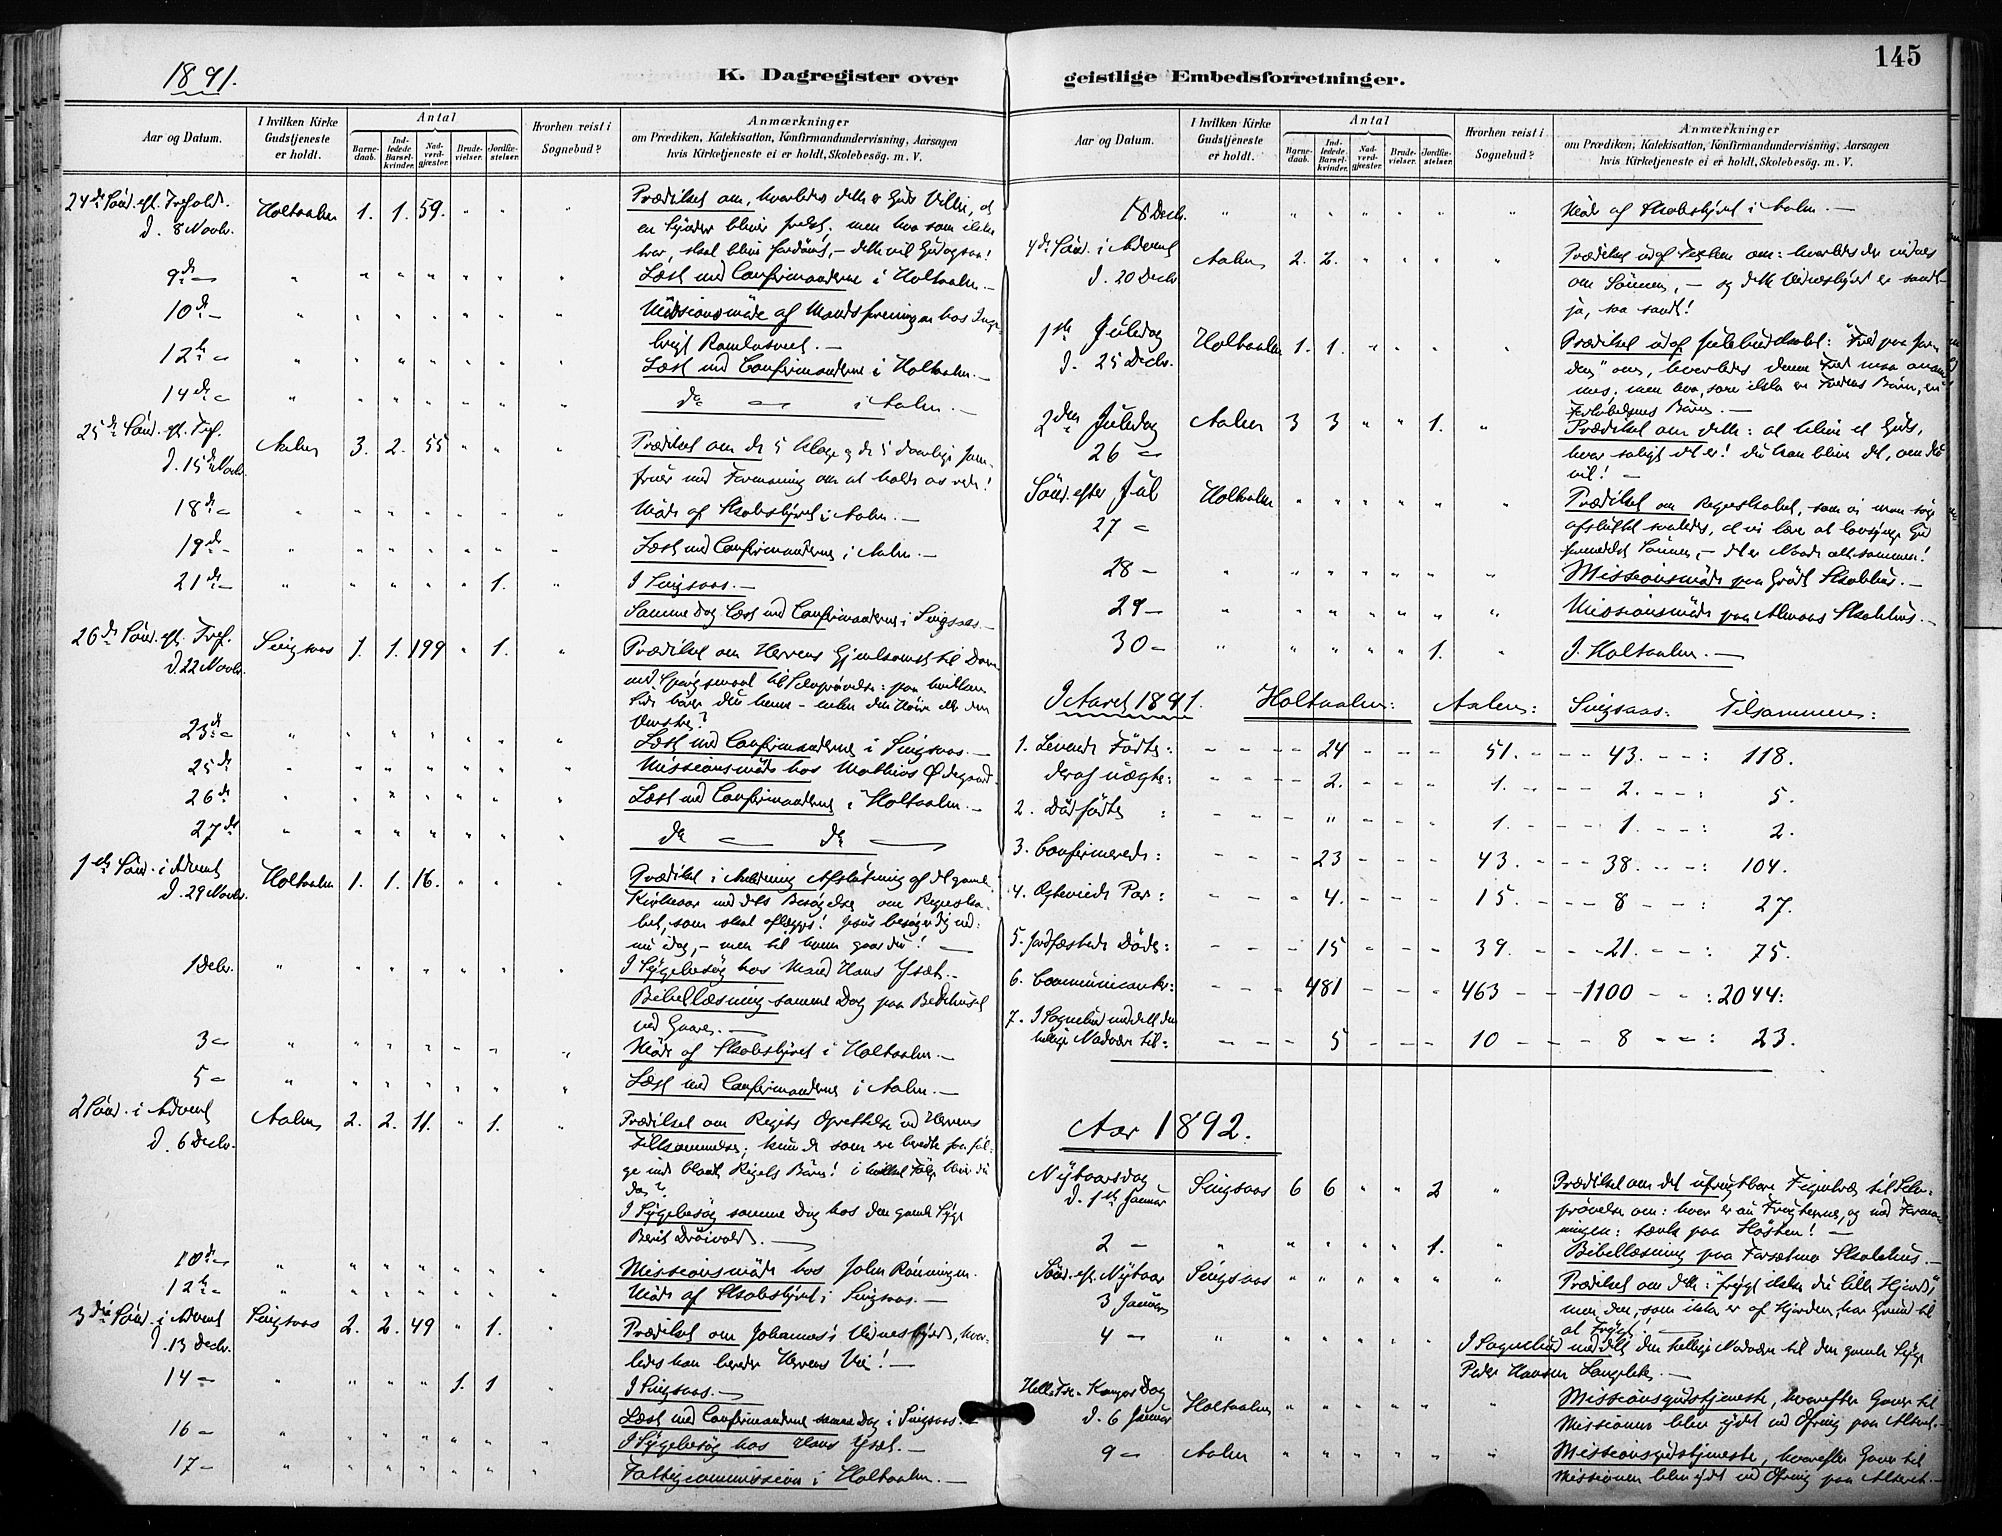 145
1891.
K. Dagregister over geistlige Embedsforretninger.
Aar og Datum. I hvilken Kirke Gudstjeneste er holdt. Antal Barnedaab. Indledede Barselkvinder. Nadverdgjester. Brudevielser. Jordfæstelser. Hvorhen reist i Sognebud? Anmærkninger
om Prædiken, Katekisation, Konfirmandundervisning, Aarsagen
hvis Kirketjeneste ei er holdt, Skolebesøg. m. V.
24de Sönd. eft. Trefoldt. Prædiket om, hvorledes dette er Guds Villie, at
d. 8 Novbr. Holtaalen 1. 1. 59. " " " en Synder bliver frelst; men hvo som ikke
tror, skal blive fordömt, – dette vil Gud ogsaa!
9de – " " " " " " " Læst med Confirmanderne i Holtaalen. –
10de – " " " " " " " Missionsmöde af Mandsforeningen hos Inge-
brigt Ramlosveet. –
12te – " " " " " " " Læst med Confirmanderne i Holtaalen. –
14de – " " " " " " " do – i Aalen. –
25de Sönd. eft. Tref.
d. 15de Novbr. Aalen 3. 2. 55 " " " Prædiket om de 5 kloge og de 5 daarlige Jom-
fruer med Formaning om at holde os rede!
18de – " " " " " " " Möde af Skolestyret i Aalen. –
19de – " " " " " " " Læst med Confirmanderne i Aalen. –
21de – " " " " " 1. " I Singsaas. –
Samme Dag Læst med Confirmanderne i Singsaas. –
26de Sönd. eft. Tref.
d. 22 Novbr. Singsaas 1. 1. 199 " 1. " Prædiket om Herrens Gjenkomst til Dom
med Spörgsmaal til Selvprövelse: paa hvilken
Side hörer du henne – enten den Höire eller den
Venstre?
23de – " " " " " " " Læst med Confirmanderne i Singsaas. –
25de " " " " " " " Missionsmöde hos Mathias Ødegaard. –
26de " " " " " " " Læst med Confirmanderne i Holtaalen. –
27de " " " " " " " do – do –
1ste Sönd. i Advent
d. 29 Novbr. Holtaalen 1. 1. 16. " " " Prædiket i Anledning Afslutning af det gamle
Kirkeaar med dets Besögelse om Regnska-
bet, som skal aflægges! Jesus besöger dig end-
nu idag, – men til hvem gaar du! –
1 Decbr. " " " " " " " I Sygebesög hos Mand Hans Ysæt. –
Bibellæsning samme Dag paa Bedehuset
ved Gaare. –
3 – " " " " " " " Möde af Skolestyret i Holtaalen. –
5 – " " " " " " " Læst med Confirmanderne i Aalen. –
2 Sönd. i Advent
d. 6 Decbr. Aalen 2. 2. 11. " 1. " Prædiket om Rigets Oprettelse ved Herrens
Tilkommelse; kun de som ere beredte faa föl-
ge ind blandt Rigets Börn! i hvilket Fölge bliver du
da?
I Sygebesög samme Dag hos den gamle Syge
Berit Dröivold. –
10de – " " " " " " " Missionsmöde hos John Rönningen.
12te – " " " " " " " Möde af Skolestyret i Singsaas. –
3die Sönd. i Advent
d. 13 Decbr. Singsaas 2. 2. 49 " 1. " Prædiket om Johannes's Vidnesbyrd, hvor-
ledes han bereder Herrens Vei! –
14 – " " " " 1. 1 " I Singsaas. –
Læst med Confirmanderne samme Dag i Singsaas. –
16 – " " " " " " " I Sygebesög hos Hans Ysæt. –
17 – " " " " " " " Fattigcommission i Holtaalen. –
Aar og Datum. I hvilken Kirke Gudstjeneste er holdt. Antal Barnedaab. Indledede Barselkvinder. Nadverdgjester. Brudevielser. Jordfæstelser. Hvorhen reist i Sognebud? Anmærkninger
om Prædiken, Katekisation, Konfirmandundervisning, Aarsagen
hvis Kirketjeneste ei er holdt, Skolebesøg. m. V.
18 Decb. " " " " " " " Möde af Skolestyret i Aalen. –
4de Sönd. i Advent
d. 20 Decbr Aalen 2. 2. " " " " Prædiket udaf Texten om: hvorledes der vidnes
om Sönnen, – og dette Vidnesbyrd er sandt –
ja, saa sandt!
1ste Juledag
d. 25 Decbr. Holtaalen 1. 1. " " " " Prædiket udaf Julebudskabet: "Fred paa Jor-
den" om, hvorledes denne Fred maa annam-
mes; men hvo, som ikke er Fredens Barn, er
Fortabelsens Barn. –
2den Juledag
26 – Aalen 3 3 " " 1. " Prædiket om dette: at blive et Guds,
hvor saligt det er! du kan blive det, om du
vil! –
Sönd. efter Jul
27 – Holtaalen " " " " " " Prædiket om Regnskabet, som vi maa söge
afsluttet saaledes, at vi lære at lovsynge Gud
formedelst Sönnen, – det er Naade altsammen!
28 – " " " " " " " Missionsmöde paa Gröt Skolehus. –
29 – " " " " " " " Missionsmöde paa Almaas Skolehus. –
30 – " " " " " 1. " I Holtaalen. –
I Aaret 1891. Holtaalen: Aalen: Singsaas: Tilsammen:
1. Levende Födte: – 24 – 51. – 43. – : 118.
deraf uægte: – 2. – 1. – 2. – : 5.
2. Dödfödte : – " – 1. – 1. – : 2.
3. Confirmerede: – 23 – 43. – 38. – : 104.
4. Ægteviede Par: – 4. – 15. – 8 – : 27.
5. Jordfæstede Döde: – 15 – 39. – 21. – : 75.
6. Communicanter: – 481 – 463 – 1100 – : 2044:
7. I Sognebud meddelt den
hellige Nadvere til: – 5 – 10 – 8 – : 23.
Aar 1892.
Nytaarsdag
d. 1ste Januar Singsaas 6 6 " " 2 " Prædiket om det ufrugtbare Figentræ til Selv-
prövelse om: hvor er nu Frugterne, og med Forma-
ningen: tænk paa Hösten! –
2 – " " " " " 1. " Bibellæsning paa Forsetmo Skolehus. –
Sönd. eft. Nytaar
3 Januar Singsaas " " " " " " Prædiket om dette: "frygt ikke du lille Hjord",
men den, som ikke er af Hjorden, har Grund til
at frygt! –
4 – " " " " " " I Sognebud meddelt den hellige Nadvere til den gamle Syge
Peder Hansen Langeletet. –
Helle Tre Konger Dag
d. 6 Januar Holtaalen " " " " " " Missionsgudstjeneste, hvorefter Gaver til
Missionen blev ydet ved Ofring paa Alteret. –
9 – Aalen " " " " " " Missionsgudstjeneste, hvorefter Gaver til
Missionen blev ydet ved Ofring paa Alteret. –